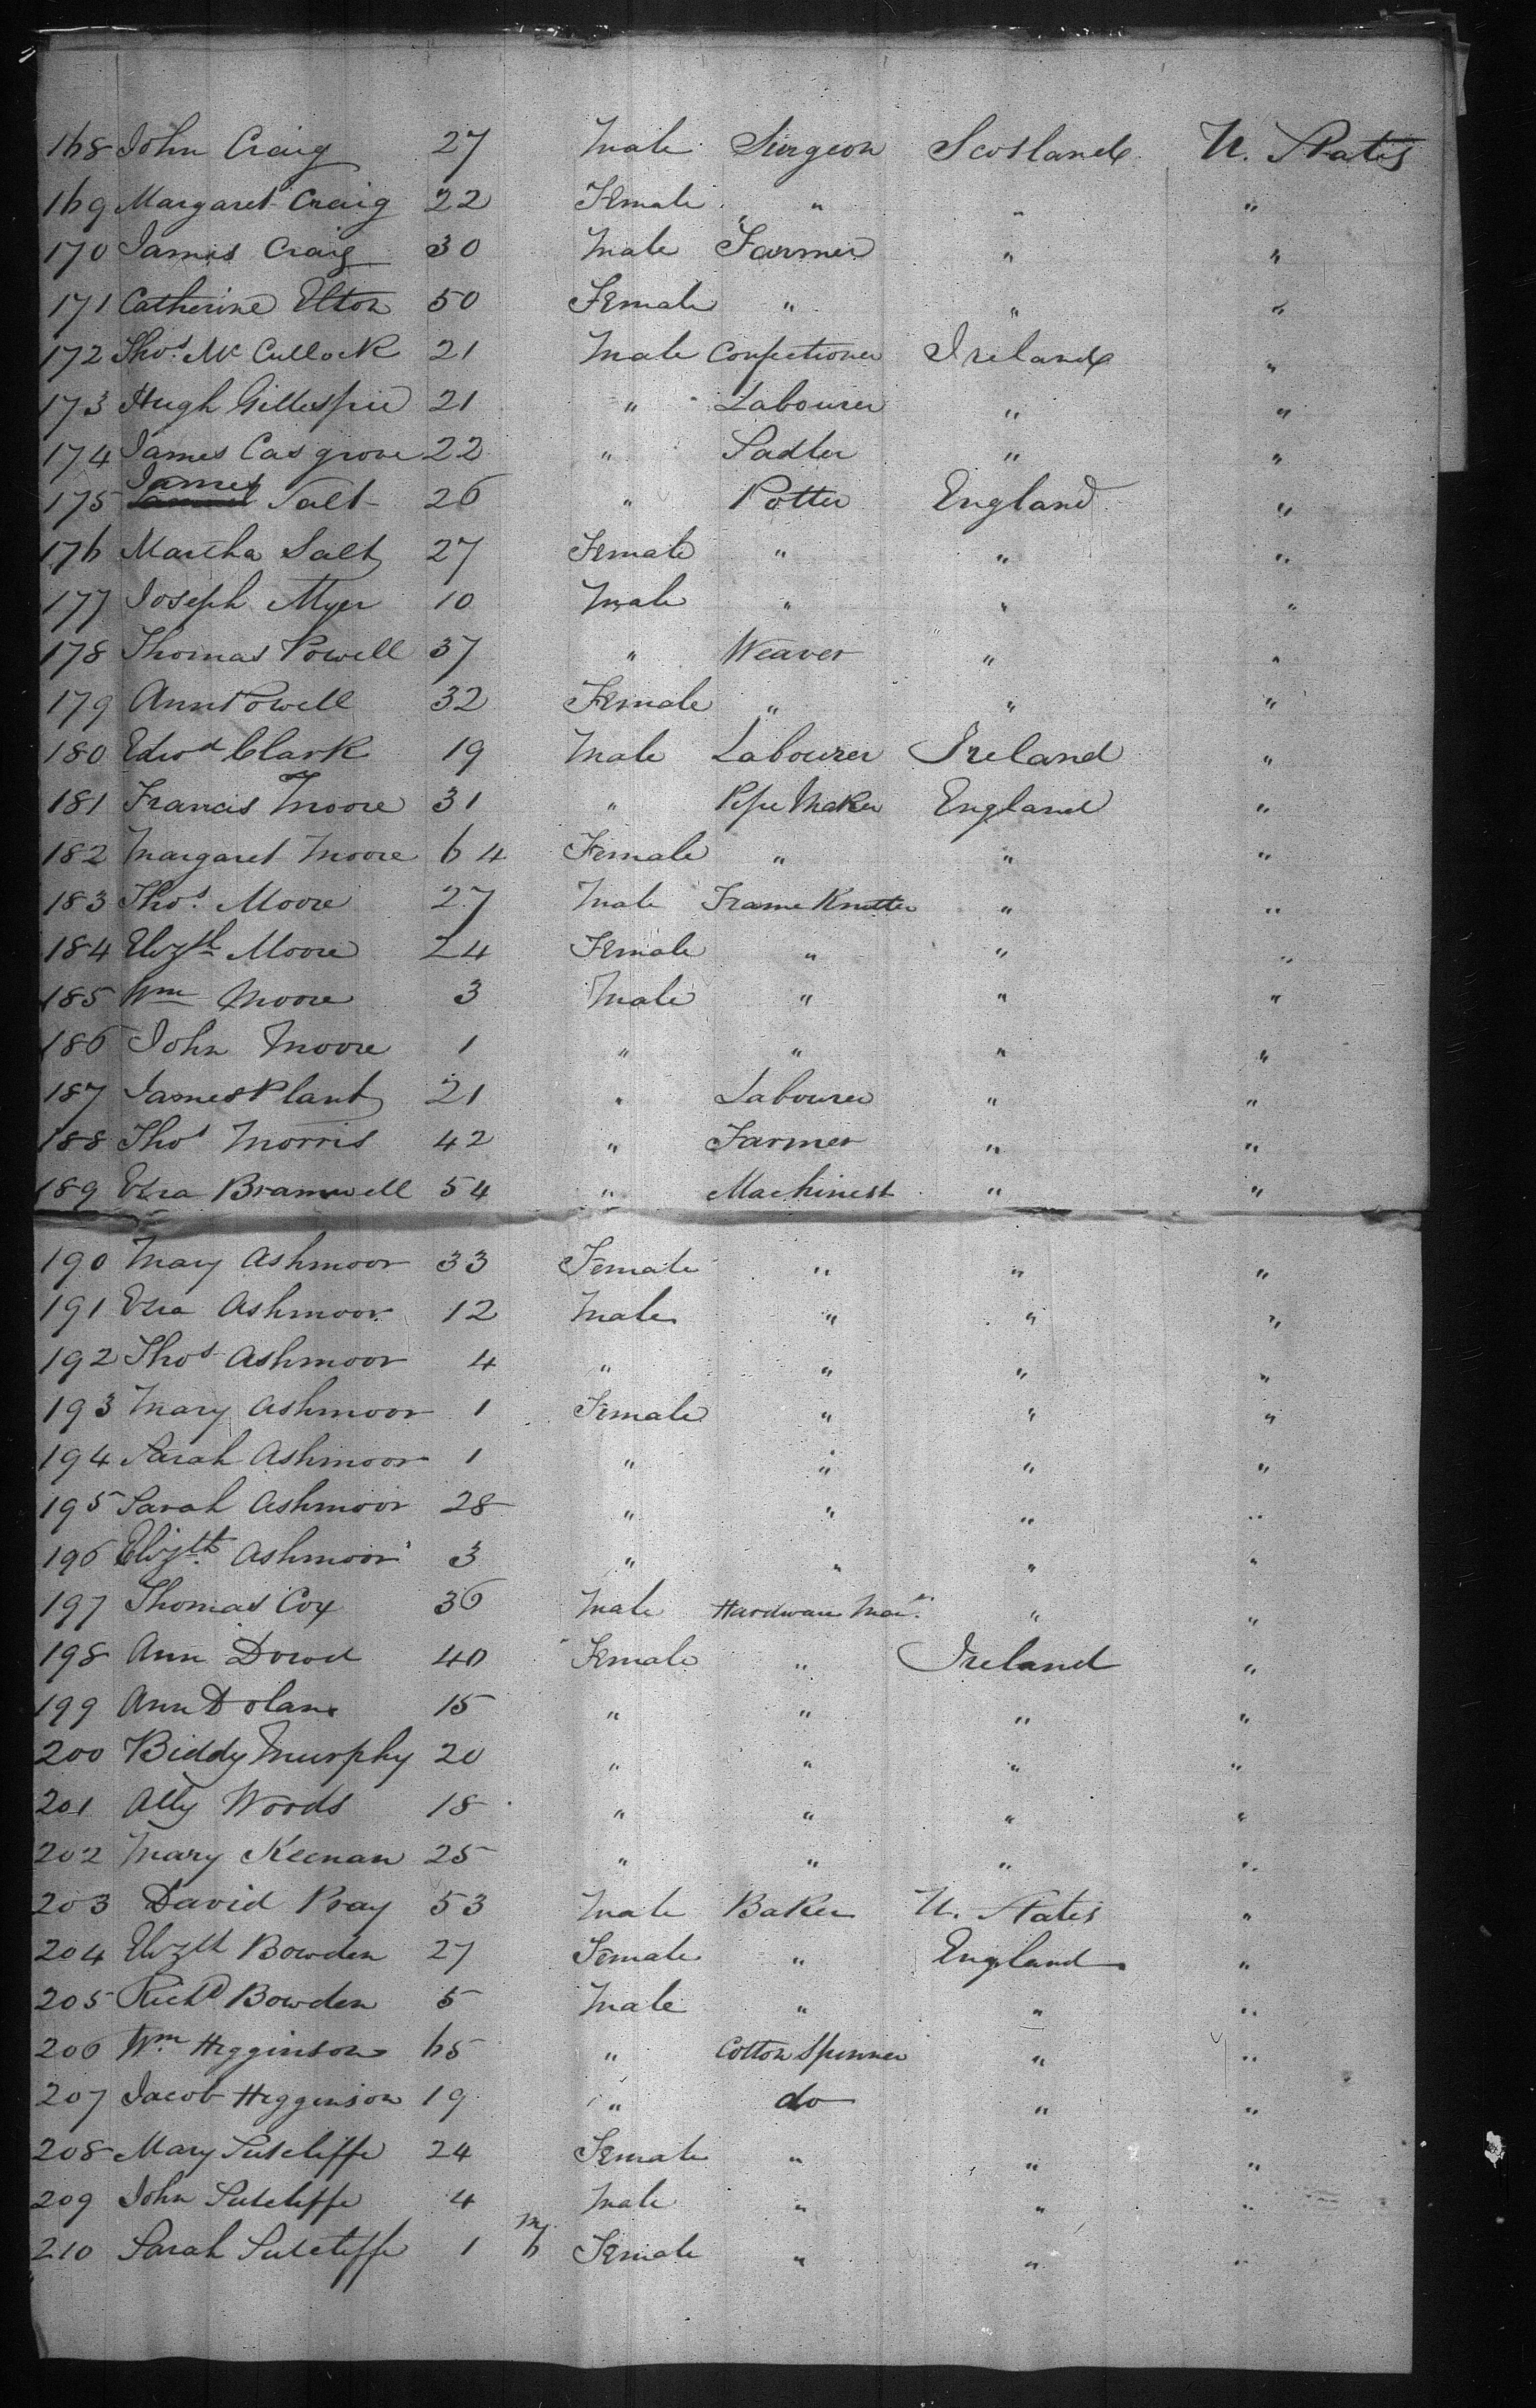 168 John Craig 27 Male Surgeon Scotland U. States
169 Margaret Craig 22 Female " " "
170 James Craig 30 Male Farmer " "
171 Catherine Elton 50 Female " " "
172 Thos. Mc Cullock 21 Male Confectioner Ireland "
173 Hugh Gillespie 21 " Labourer " "
174 James Casgrove 22 " Sadler " "
175 James Salt 26 " Potter England "
176 Martha Salt 27 Female " " "
177 Joseph Myer 10 Male " " "
178 Thomas Powell 37 " Weaver " "
179 Ann Powell 32 Female " " "
180 Edwd Clark 19 Male Labourer Ireland "
181 Francis Moore 31 " Pipe Maker England "
182 Margaret Moore 64 Female " " "
183 Thos. Moore 27 Male Frame Knitter " "
184 Elizth Moore 24 Female " " "
185 Wm Moore 3 Male " " "
186 John Moore 1 " " " "
187 James Plant 21 " Labourer " "
188 Thos Morris 42 " Farmer " "
189 Ezra Bramwell 54 " Machinest " "
190 Mary Ashmoor 33 Female " " "
191 Ezra Ashmoor 12 Male " " "
192 Thos Ashmoor 4 " " " "
193 Mary Ashmoor 1 Female " " "
194 Sarah Ashmoor 1 " " " "
195 Sarah Ashmoor 28 " " " "
196 Elizth. Ashmoor 3 " " " "
197 Thomas Cox 36 Male Hardware " "
198 Ann Dowd 40 Female " Ireland "
199 Ann Dolan 15 " " " "
200 Biddy Murphy 20 " " " "
201 Ally Woods 18 " " " "
202 Mary Keenan 25 " " " "
203 David Pray 53 Male Baker U. States "
204 Elizth Bowden 27 Female " England "
205 Richd Bowden 5 Male " " "
206 Wm. Higginson 65 " Cotton Spinner " "
207 Jacob Higginson 19 " do " "
208 Mary Sutcliffe 24 Female " " "
209 John Sutcliffe 4 Male " " "
210 Sarah Sutcliffe 1 Female " " "